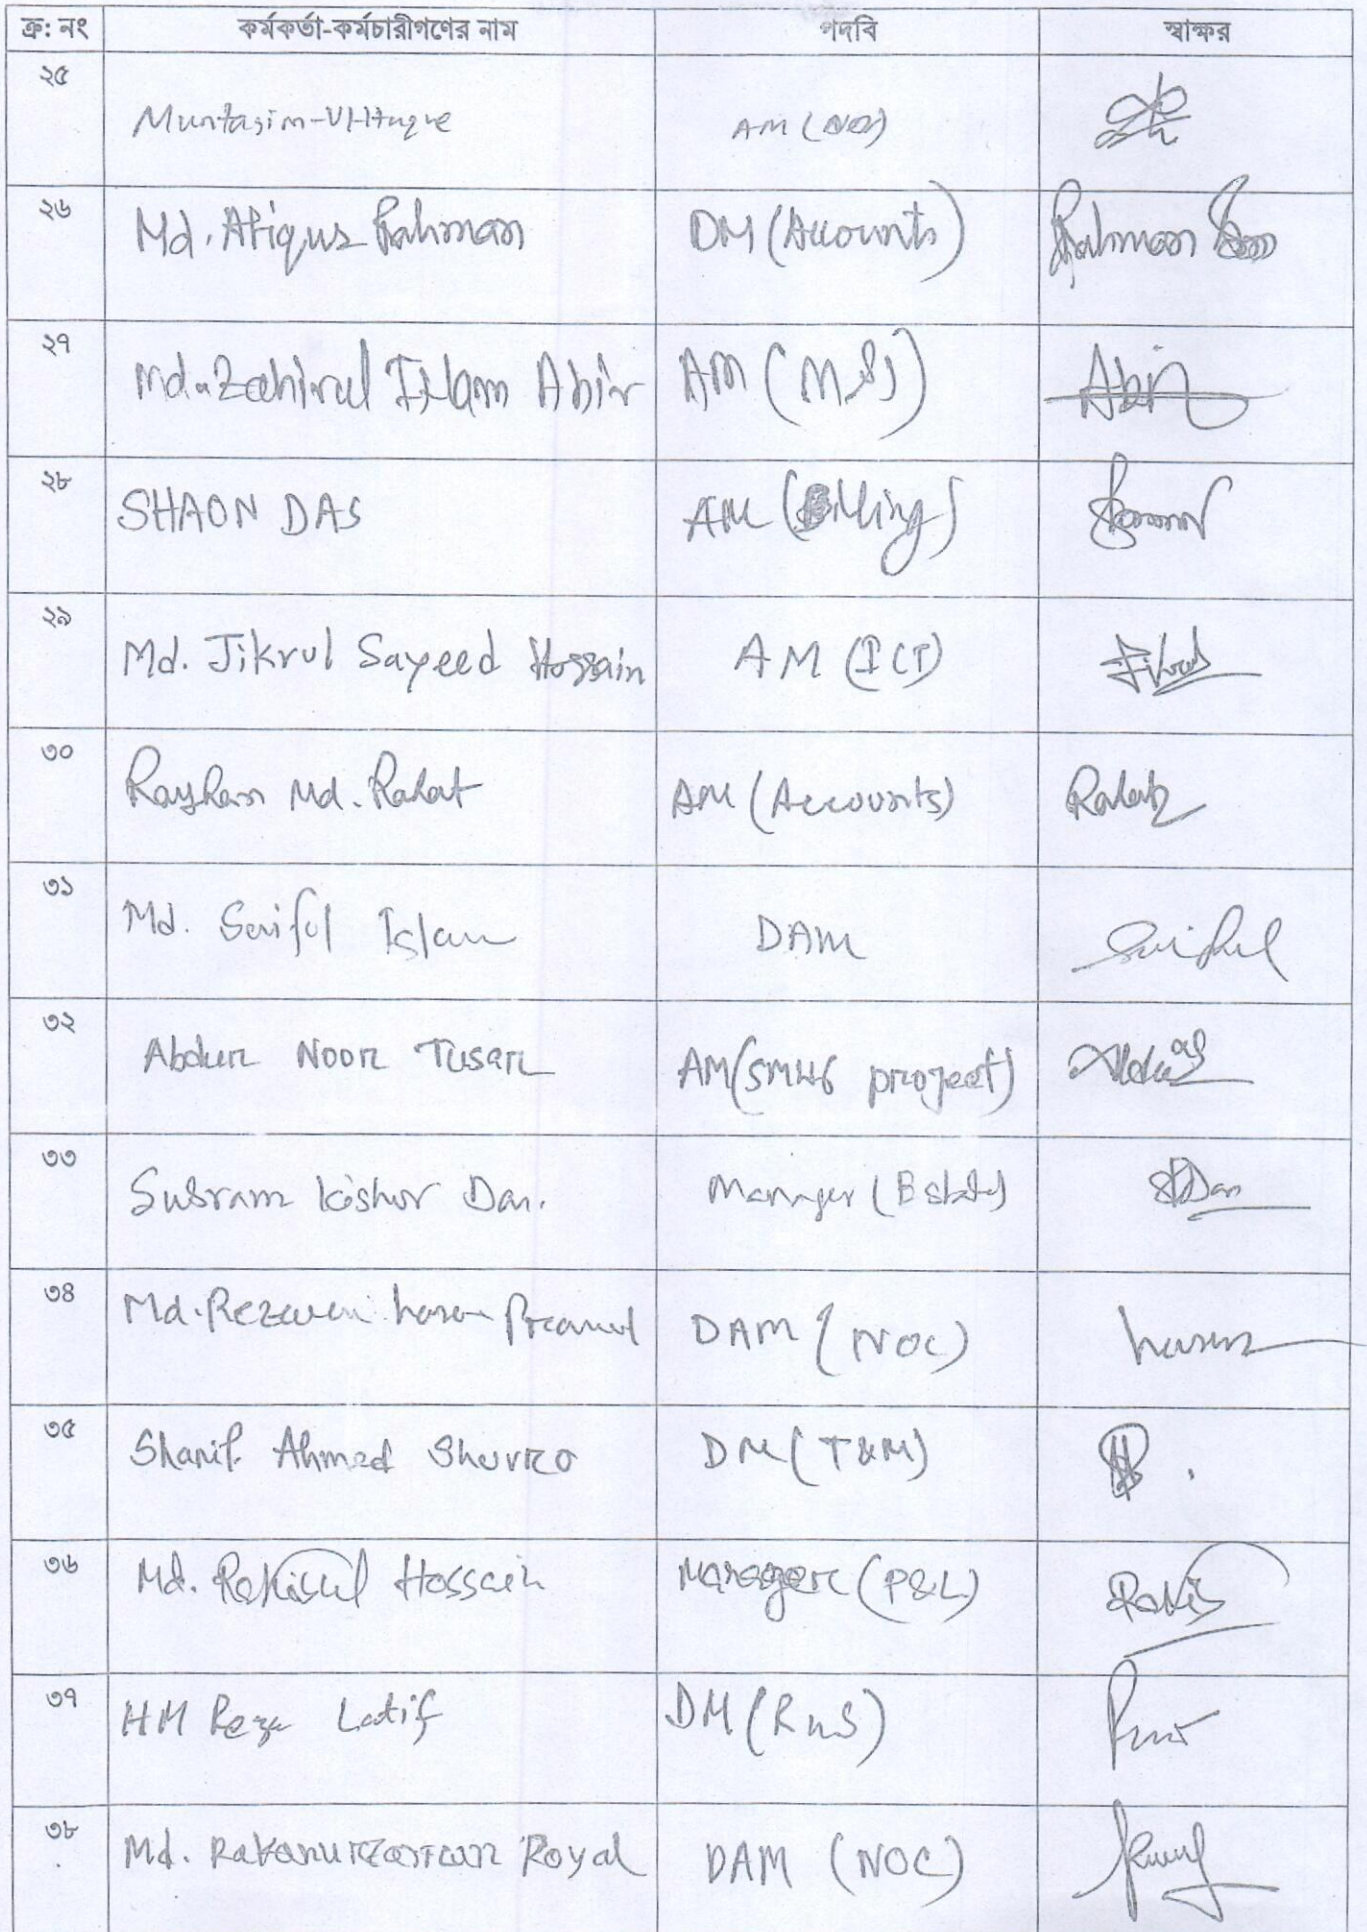 ক্র: নং কর্মকর্তা-কর্মচারীগণের নাম পদবি স্বাক্ষর
২৫ Muntasim-Ul-Huque AM (NOC)
২৬ Md. Atiqur Rahman DM (Accounts) Rahman
২৭ Md. Zahirul Islam Abir AM ( Abir
২৮ SHAON DAS AM (Billing)
২৯ Md. Jikrul Sayeed Hossain AM (ICT) Jikrul
৩০ Rayhan Md. Rahat AM (Accounts) Rahat
৩১ Md. Saiful Islam DAM Saiful
৩২ Abdur Noor Tusar AM ( project)
৩৩ Kishor Das. Manager (Estate) Das
৩৪ Md. Rezwan hasan DAM (NOC) hasan
৩৫ Sharif Ahmed Shuvro DM (T&M)
৩৬ Md. Rakibul Hossain Manager (P&L) Rakib
৩৭ HM Reza Latif DM (RnS)
৩৮ Md. Rakanuzzaman Royal DAM (NOC)